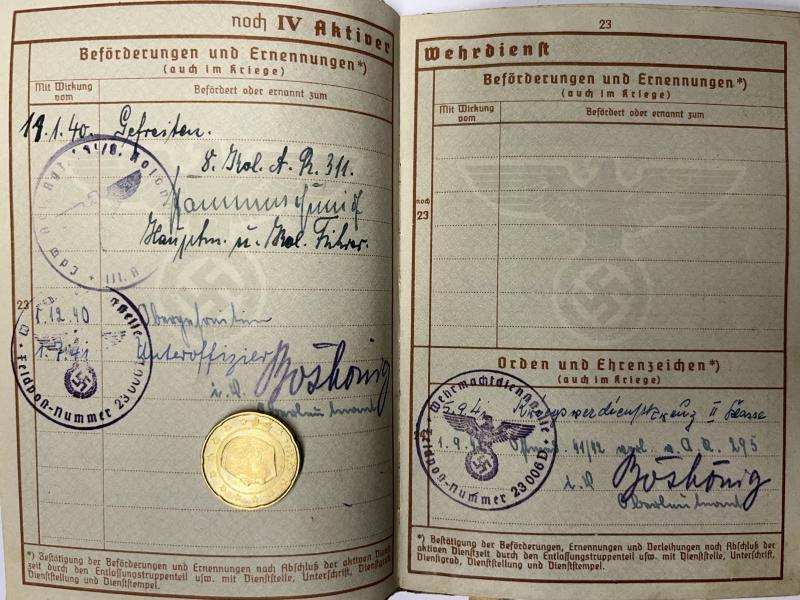 noch IV Aktiver
Beförderungen und Ernennungen*)
(auch im Kriege)
Mit Wirkung vom
Befördert oder ernannt zum
1.40. Gefreiten.
8. Kol. A. R. 311.
Hauptm. u. Kol. Führer.
23
12.40 Obergefreiten
Unteroffizier
Böskönig
Oberleutnant
Feldpost-Nummer 23006D
*) Bestätigung der Beförderungen und Ernennungen nach Abschluß der aktiven Dienst-
zeit durch den Entlassungstruppenteil usw. mit Dienststelle, Unterschrift, Dienstgrad,
Dienststellung und Dienststempel.
23
Wehrdienst
Beförderungen und Ernennungen*)
(auch im Kriege)
Mit Wirkung vom
Befördert oder ernannt zum
noch 23
Orden und Ehrenzeichen*)
(auch im Kriege)
Kriegsverdienstkreuz II Klasse
1.9. 41/42 A.R. 295
Böskönig
Oberleutnant
Feldpost-Nummer 23006D
*) Bestätigung der Beförderungen, Ernennungen und Verleihungen nach Abschluß der
aktiven Dienstzeit durch den Entlassungstruppenteil usw. mit Dienststelle, Unterschrift,
Dienstgrad, Dienststellung und Dienststempel.